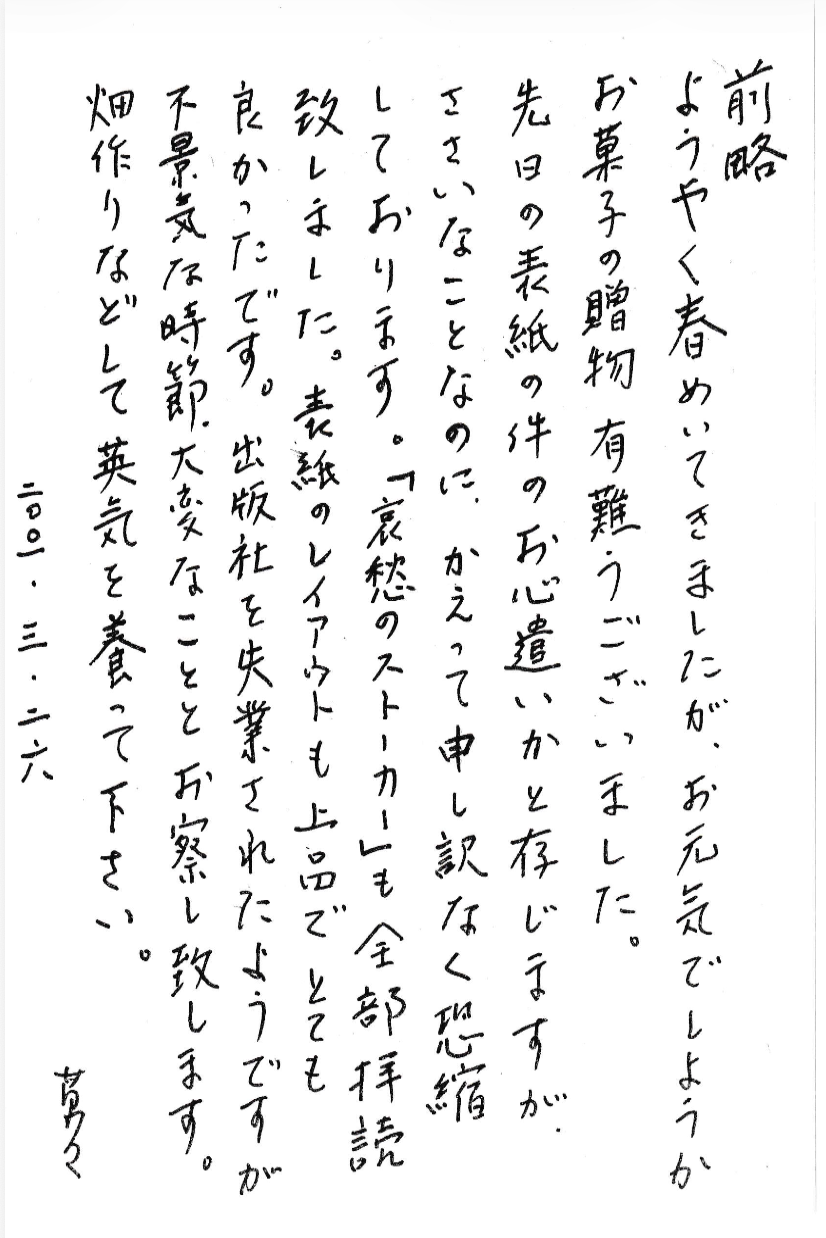 前略
ようやく春めいてきましたが、お元気でしようか
お菓子の贈物 有難うございました。
先日の表紙の件のお心遣いかと存じますが、
ささいなことなのに、かえって申し訳なく恐縮
しております。「哀愁のストーカー」も全部拝読
致しました。表紙のレイアウトも上品でとても
良かったです。出版社を失業されたようですが
不景気な時節、大変なこととお察し致します。
畑作りなどして英気を養って下さい。
二〇〇一・三・二六
草々